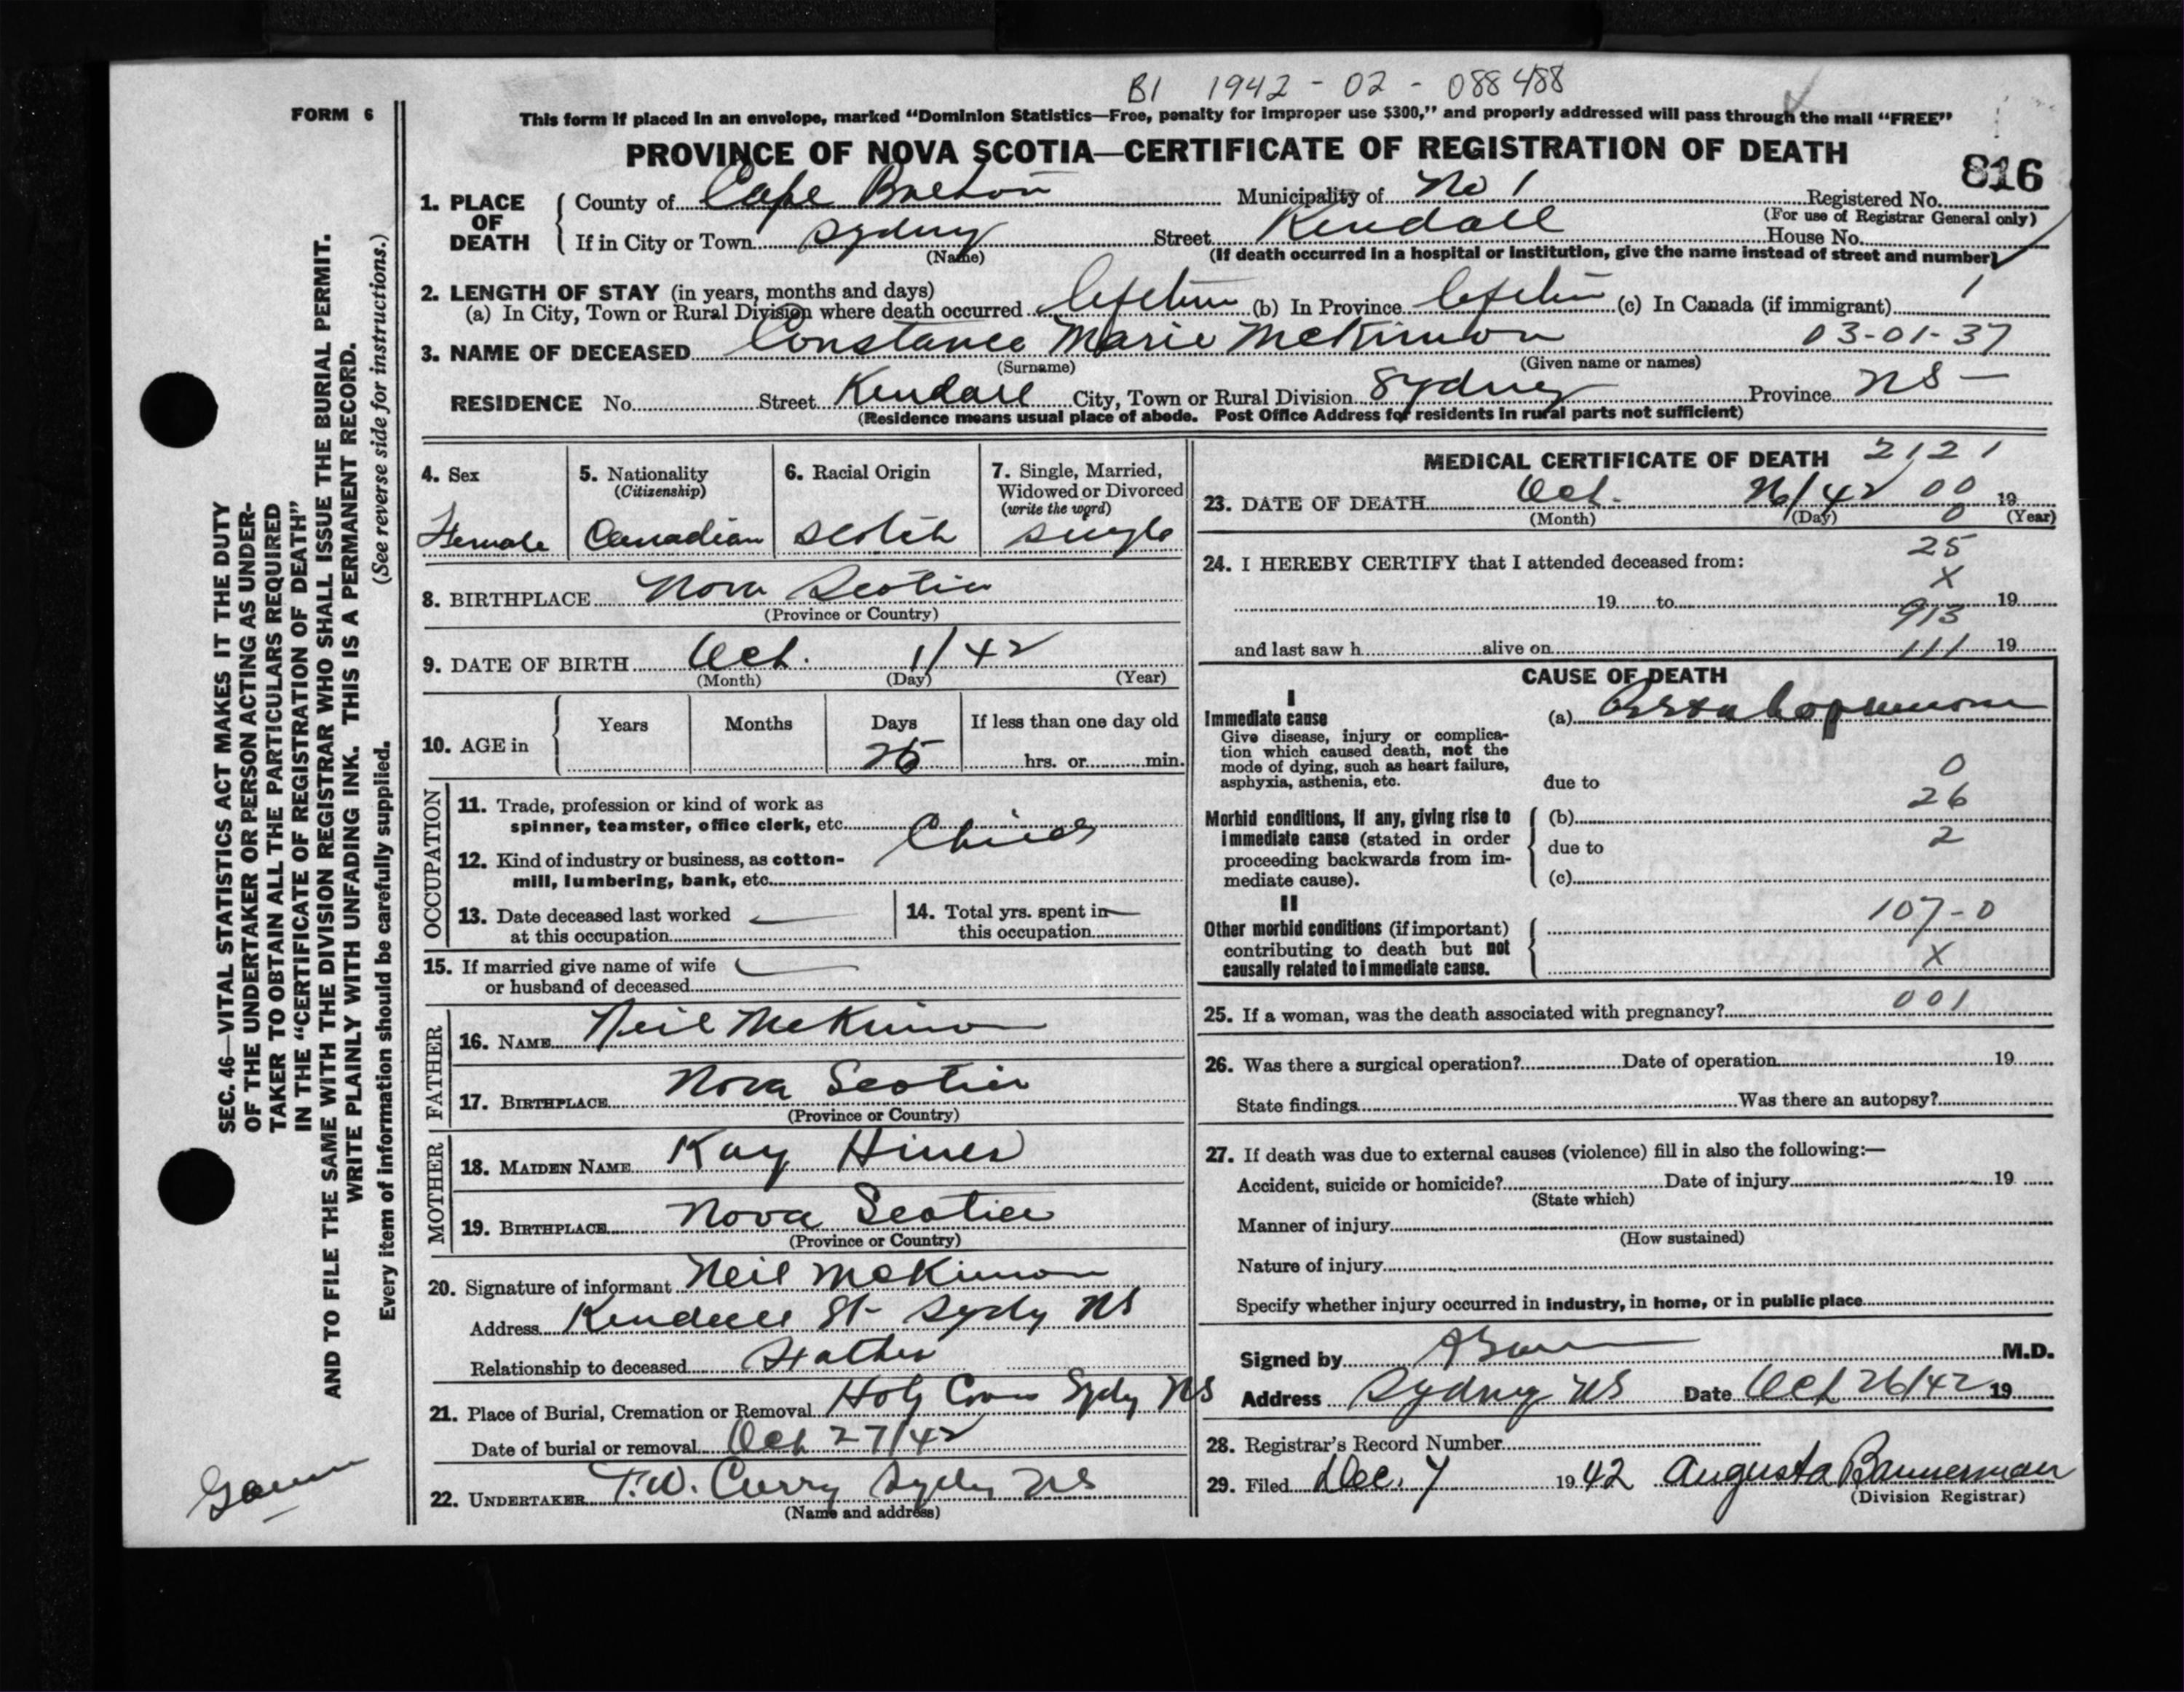 B1 1942 - 02 - 088488
FORM 6
This form if placed in an envelope, marked “Dominion Statistics—Free, penalty for improper use $300,” and properly addressed will pass through the mail “FREE”
PROVINCE OF NOVA SCOTIA—CERTIFICATE OF REGISTRATION OF DEATH
816
1. PLACE OF DEATH
County of Cape Breton Municipality of No 1 Registered No.
(For use of Registrar General only)
If in City or Town Sydney Street Kendall House No.
(Name) (If death occurred in a hospital or institution, give the name instead of street and number)
2. LENGTH OF STAY (in years, months and days)
(a) In City, Town or Rural Division where death occurred lifetime (b) In Province lifetime (c) In Canada (if immigrant) 1
3. NAME OF DECEASED Constance Marie McKinnon 03-01-37
(Surname) (Given name or names)
RESIDENCE No. Street Kendall City, Town or Rural Division Sydney Province NS —
(Residence means usual place of abode. Post Office Address for residents in rural parts not sufficient)
4. Sex
Female
5. Nationality
(Citizenship)
Canadian
6. Racial Origin
Scotch
7. Single, Married,
Widowed or Divorced
(write the word)
single
8. BIRTHPLACE Nova Scotia
(Province or Country)
9. DATE OF BIRTH Oct. 1/42
(Month) (Day) (Year)
10. AGE in
Years Months Days If less than one day old
25 hrs. or min.
OCCUPATION
11. Trade, profession or kind of work as
spinner, teamster, office clerk, etc.
Child
12. Kind of industry or business, as cotton-
mill, lumbering, bank, etc.
13. Date deceased last worked
at this occupation
14. Total yrs. spent in
this occupation
15. If married give name of wife
or husband of deceased
FATHER
16. NAME Neil McKinnon
17. BIRTHPLACE Nova Scotia
(Province or Country)
MOTHER
18. MAIDEN NAME Kay Hines
19. BIRTHPLACE Nova Scotia
(Province or Country)
20. Signature of informant Neil McKinnon
Address Kendall St - Sydy NS
Relationship to deceased Father
21. Place of Burial, Cremation or Removal Holy Cross Sydy NS
Date of burial or removal Oct 27/42
22. UNDERTAKER T.W. Curry Sydy NS
(Name and address)
MEDICAL CERTIFICATE OF DEATH 2121
23. DATE OF DEATH Oct. 26/42 00 19
(Month) (Day) 0 (Year)
24. I HEREBY CERTIFY that I attended deceased from: 25
X
19 to 19
913
and last saw h alive on 111 19
CAUSE OF DEATH
I
Immediate cause
Give disease, injury or complica-
tion which caused death, not the
mode of dying, such as heart failure,
asphyxia, asthenia, etc.
(a)
due to 0
26
Morbid conditions, if any, giving rise to
immediate cause (stated in order
proceeding backwards from im-
mediate cause).
(b)
due to 2
(c)
II
Other morbid conditions (if important)
contributing to death but not
causally related to immediate cause.
107-0
X
25. If a woman, was the death associated with pregnancy? 001
26. Was there a surgical operation? Date of operation 19
State findings Was there an autopsy?
27. If death was due to external causes (violence) fill in also the following:—
Accident, suicide or homicide? Date of injury 19
(State which)
Manner of injury
(How sustained)
Nature of injury
Specify whether injury occurred in industry, in home, or in public place
Signed by M.D.
Address Sydney NS Date Oct 26/42 19
28. Registrar's Record Number
29. Filed Dec. 7 1942 Augusta Bannerman
(Division Registrar)
SEC. 46—VITAL STATISTICS ACT MAKES IT THE DUTY
OF THE UNDERTAKER OR PERSON ACTING AS UNDER-
TAKER TO OBTAIN ALL THE PARTICULARS REQUIRED
IN THE “CERTIFICATE OF REGISTRATION OF DEATH”
AND TO FILE THE SAME WITH THE DIVISION REGISTRAR WHO SHALL ISSUE THE BURIAL PERMIT.
WRITE PLAINLY WITH UNFADING INK. THIS IS A PERMANENT RECORD.
(See reverse side for instructions.)
Every item of information should be carefully supplied.